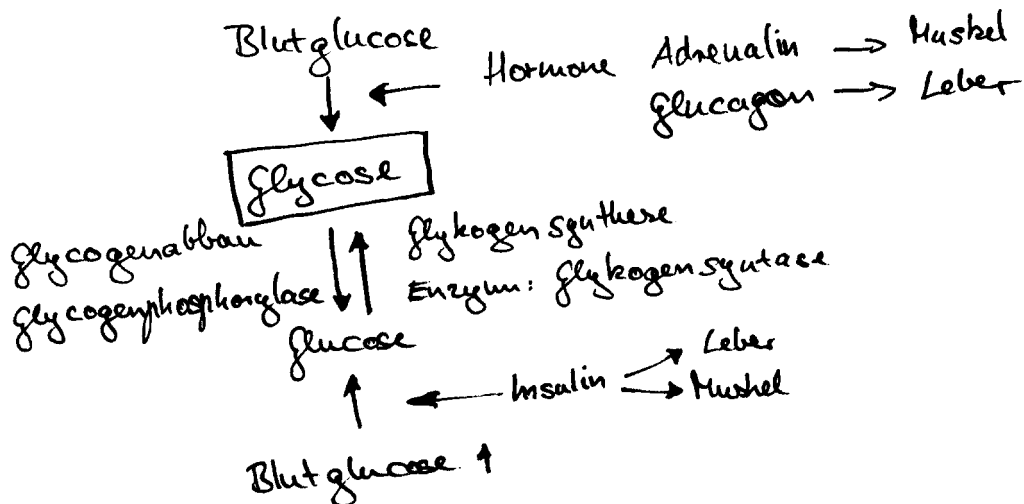 Blutglucose
Hormone Adrenalin → Muskel
Glucagon → Leber
Glycose
Glycogenabbau
Glycogenphosphorylase
Glykogensynthese
Enzym: Glykogensyntase
Glucose
Insulin
Leber
Muskel
Blutglucose ↑